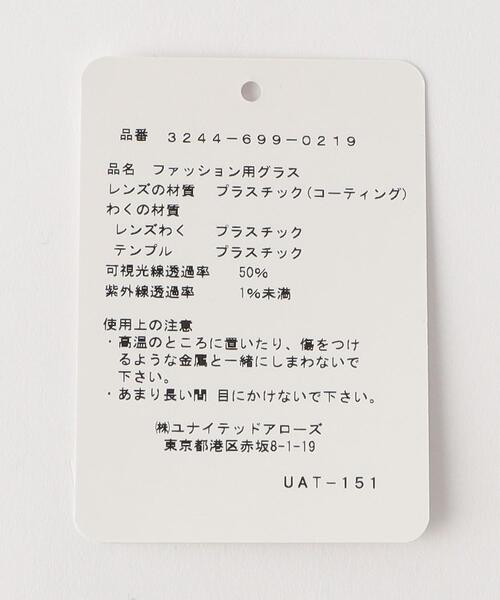 品番 3244-699-0219
品名 ファッション用グラス
レンズの材質 プラスチック(コーティング)
わくの材質
レンズわく プラスチック
テンプル プラスチック
可視光線透過率 50%
紫外線透過率 1%未満
使用上の注意
・高温のところに置いたり、傷をつけ
るような金属と一緒にしまわないで
下さい。
・あまり長い間 目にかけないで下さい。
㈱ユナイテッドアローズ
東京都港区赤坂8-1-19
UAT-151